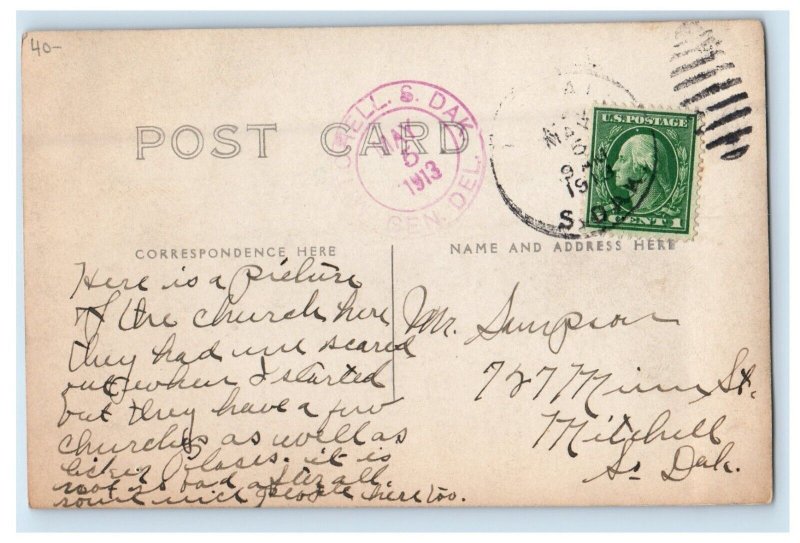 40-
POST CARD
ELL. S. DAK.
5
1913
GEN. DEL.
MAY
S. DAK.
U.S. POSTAGE
CENT 1
CORRESPONDENCE HERE
NAME AND ADDRESS HERE
Here is a picture
of the church here
they had me scared
out when I started
but they have a few
churches as well as
places. it is
not so bad after all.
some nice people here too.
Mr. Simpson
727 Minn St.
Mitchell
So Dak.